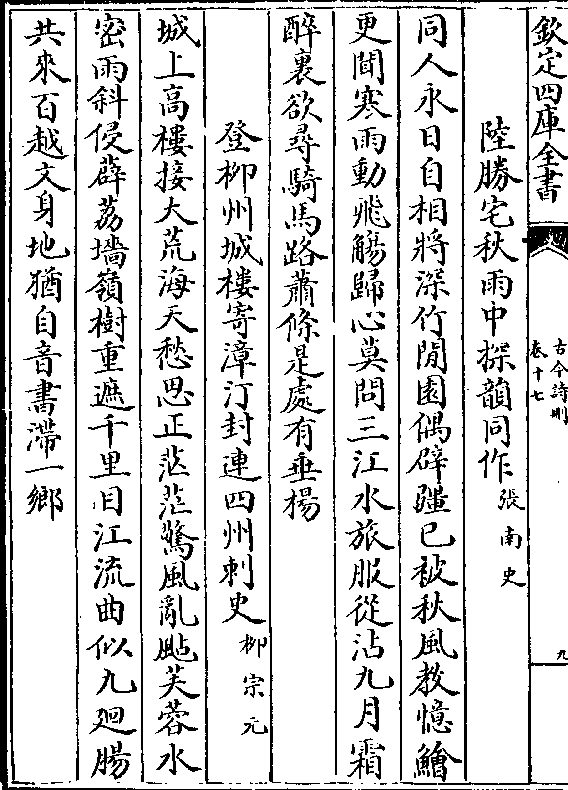 欽定四庫全書
古今詩刪
卷十七
九
陸勝宅秋雨中探韻同作 張南史
同人永日自相將深竹閒園偶辟疆已被秋風教憶鱠
更聞寒雨動飛觴歸心莫問三江水旅服從沾九月霜
醉裏欲尋騎馬路蕭條是處有垂楊
登柳州城樓寄漳汀封連四州刺史 柳宗元
城上高樓接大荒海天愁思正茫茫驚風亂颭芙蓉水
密雨斜侵薜荔墻嶺樹重遮千里目江流曲似九廻腸
共來百越文身地猶自音書滯一鄉